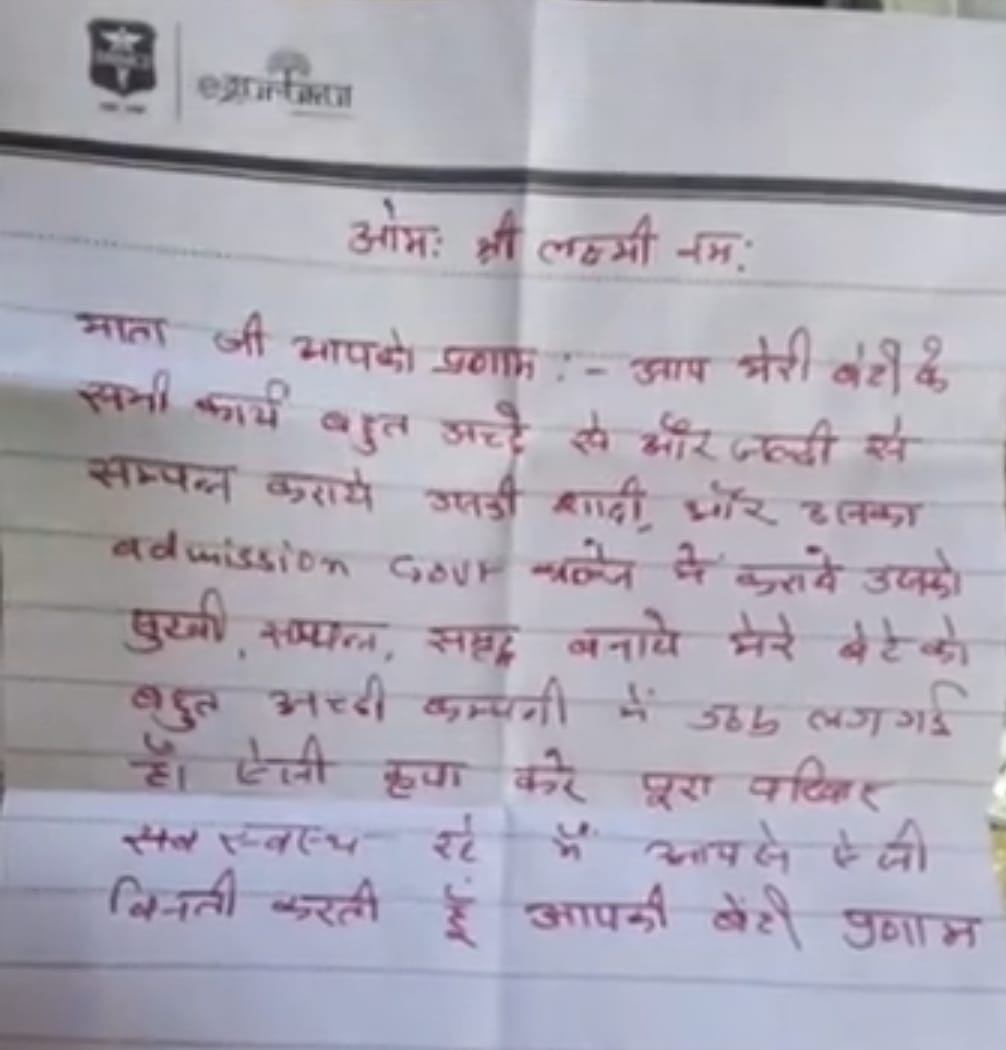 ओमः श्री लक्ष्मी नमः
माता जी आपको प्रणाम :- आप मेरी बेटी के
सभी कार्य बहुत अच्छे से और जल्दी से
सम्पन्न कराये उसकी शादी, और उसका
admission Govt कॉलेज में करावे उसको
सुखी, सम्पन्न, समृद्ध बनाये मेरे बेटे को
बहुत अच्छी कम्पनी में Job लग गई
है। ऐसी कृपा करे पूरा परिवार
सब स्वस्थ रहे मैं आपसे ऐसी
विनती करती हूँ आपकी बेटी प्रणाम